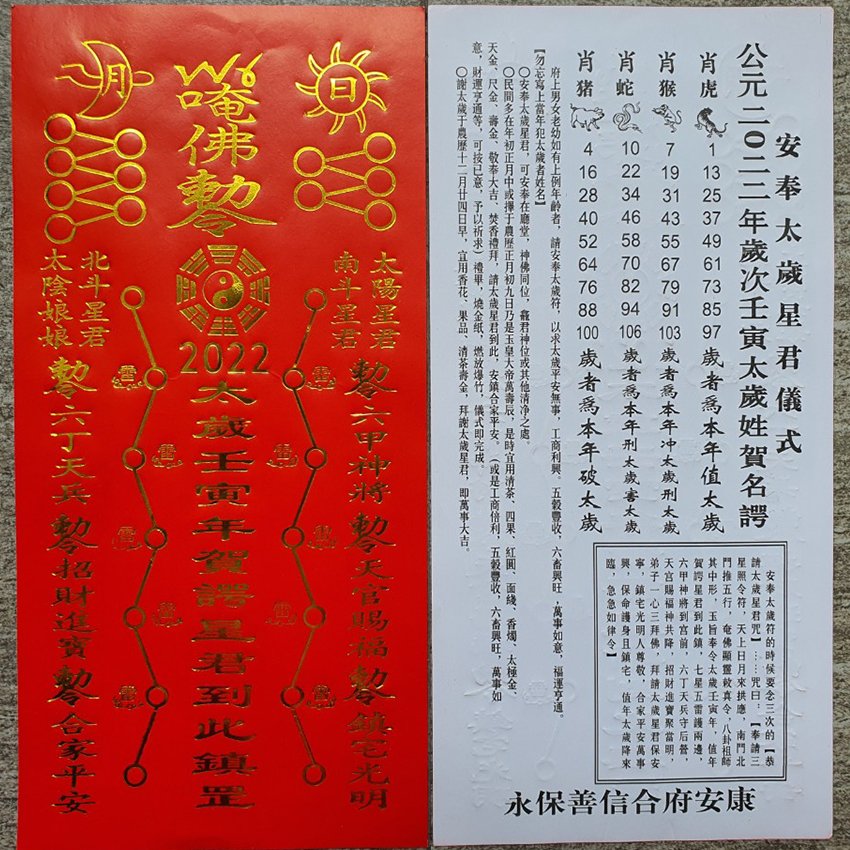 日
月
唵佛勅
太陽星君
南斗星君
北斗星君
太陰娘娘
勅六甲神將 勅天官賜福 勅鎮宅光明
2022
太歲壬寅年賀諤星君到此鎮罡
勅六丁天兵 勅招財進寶 勅合家平安
安奉太歲星君儀式
公元二〇二二年歲次壬寅太歲姓賀名諤
肖虎 1 13 25 37 49 61 73 85 97 歲者爲本年值太歲
肖猴 7 19 31 43 55 67 79 91 103 歲者爲本年冲太歲刑太歲
肖蛇 10 22 34 46 58 70 82 94 106 歲者爲本年刑太歲害太歲
肖猪 4 16 28 40 52 64 76 88 100 歲者爲本年破太歲
府上男女老幼如有上例年齡者，請安奉太歲符，以求太歲平安無事，工商利興。五穀豐收，六畜興旺，萬事如意，福運亨通。
【勿忘寫上當年犯太歲者姓名】
〇安奉太歲星君，可安奉在廳堂，神佛同位，竈君神位或其他清净之處。
〇民間多在年初正月中或擇于農歷正月初九日乃是玉皇大帝萬壽辰，是時宜用清茶、四果、紅圓、面綫、香燭、太極金、
天金、尺金、壽金、敬奉大吉、焚香禮拜，請太歲星君到此，安鎮合家平安。（或是工商倍利，五穀豐收，六畜興旺，萬事如
意，財運亨通等，可按已意，予以祈求）禮畢，燒金紙，燃放爆竹，儀式即完成。
〇謝太歲于農歷十二月廿四日早，宜用香花、果品、清茶壽金，拜謝太歲星君，即萬事大吉。
安奉太歲符的時候要念三次的【恭
請太歲星君咒】……咒曰：【奉請三
星照令符，天上日月來拱應，南鬥北
鬥推五行，奄佛顯靈敕真令，八卦祖師
其中形，玉旨奉令太歲壬寅年，值年
賀諤星君到此鎮，七星五雷護兩邊，
六甲神將到宫前，六丁天兵守后營，
天官賜福神共降，招財進寶聚當明，
弟子一心三拜佛，拜請太歲星君保安
寧，鎮宅光明人尊敬，合家平安萬事
興，保命護身且鎮宅，值年太歲降來
臨，急急如律令】
永保善信合府安康